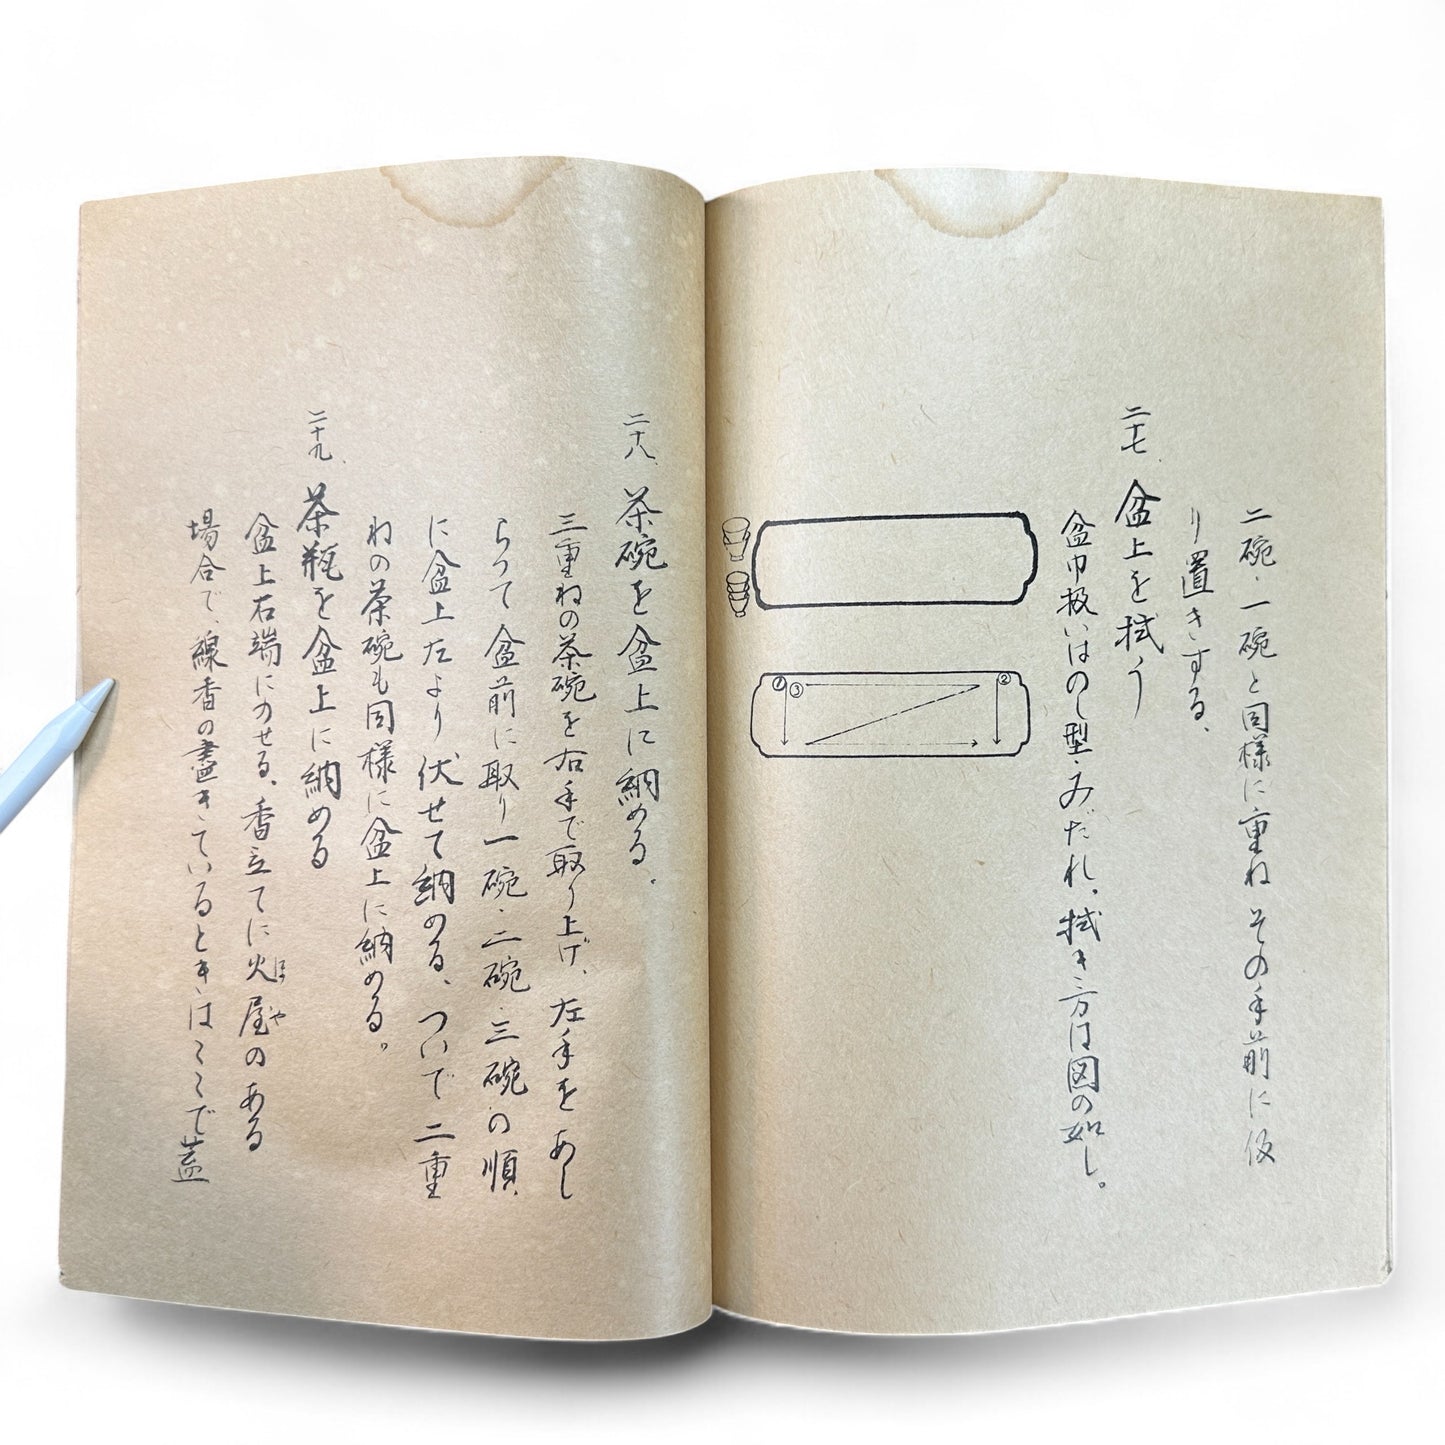 二碗・一碗と同様に重ねその手前に仮
り置きする、
二十七、盆上を拭う
盆巾扱いはのし型・みだれ、拭き方は図の如し。
①
③
②
二十八、茶碗を盆上に納める。
三重ねの茶碗を右手で取り上げ、左手をあし
らって盆前に取り一碗・二碗・三碗の順
に盆上左より伏せて納める、ついで二重
ねの茶碗も同様に盆上に納める。
二十九、茶瓶を盆上に納める
盆上右端にのせる、香立てに火屋のある
ほや
場合で、線香の書きているときはここで蓋